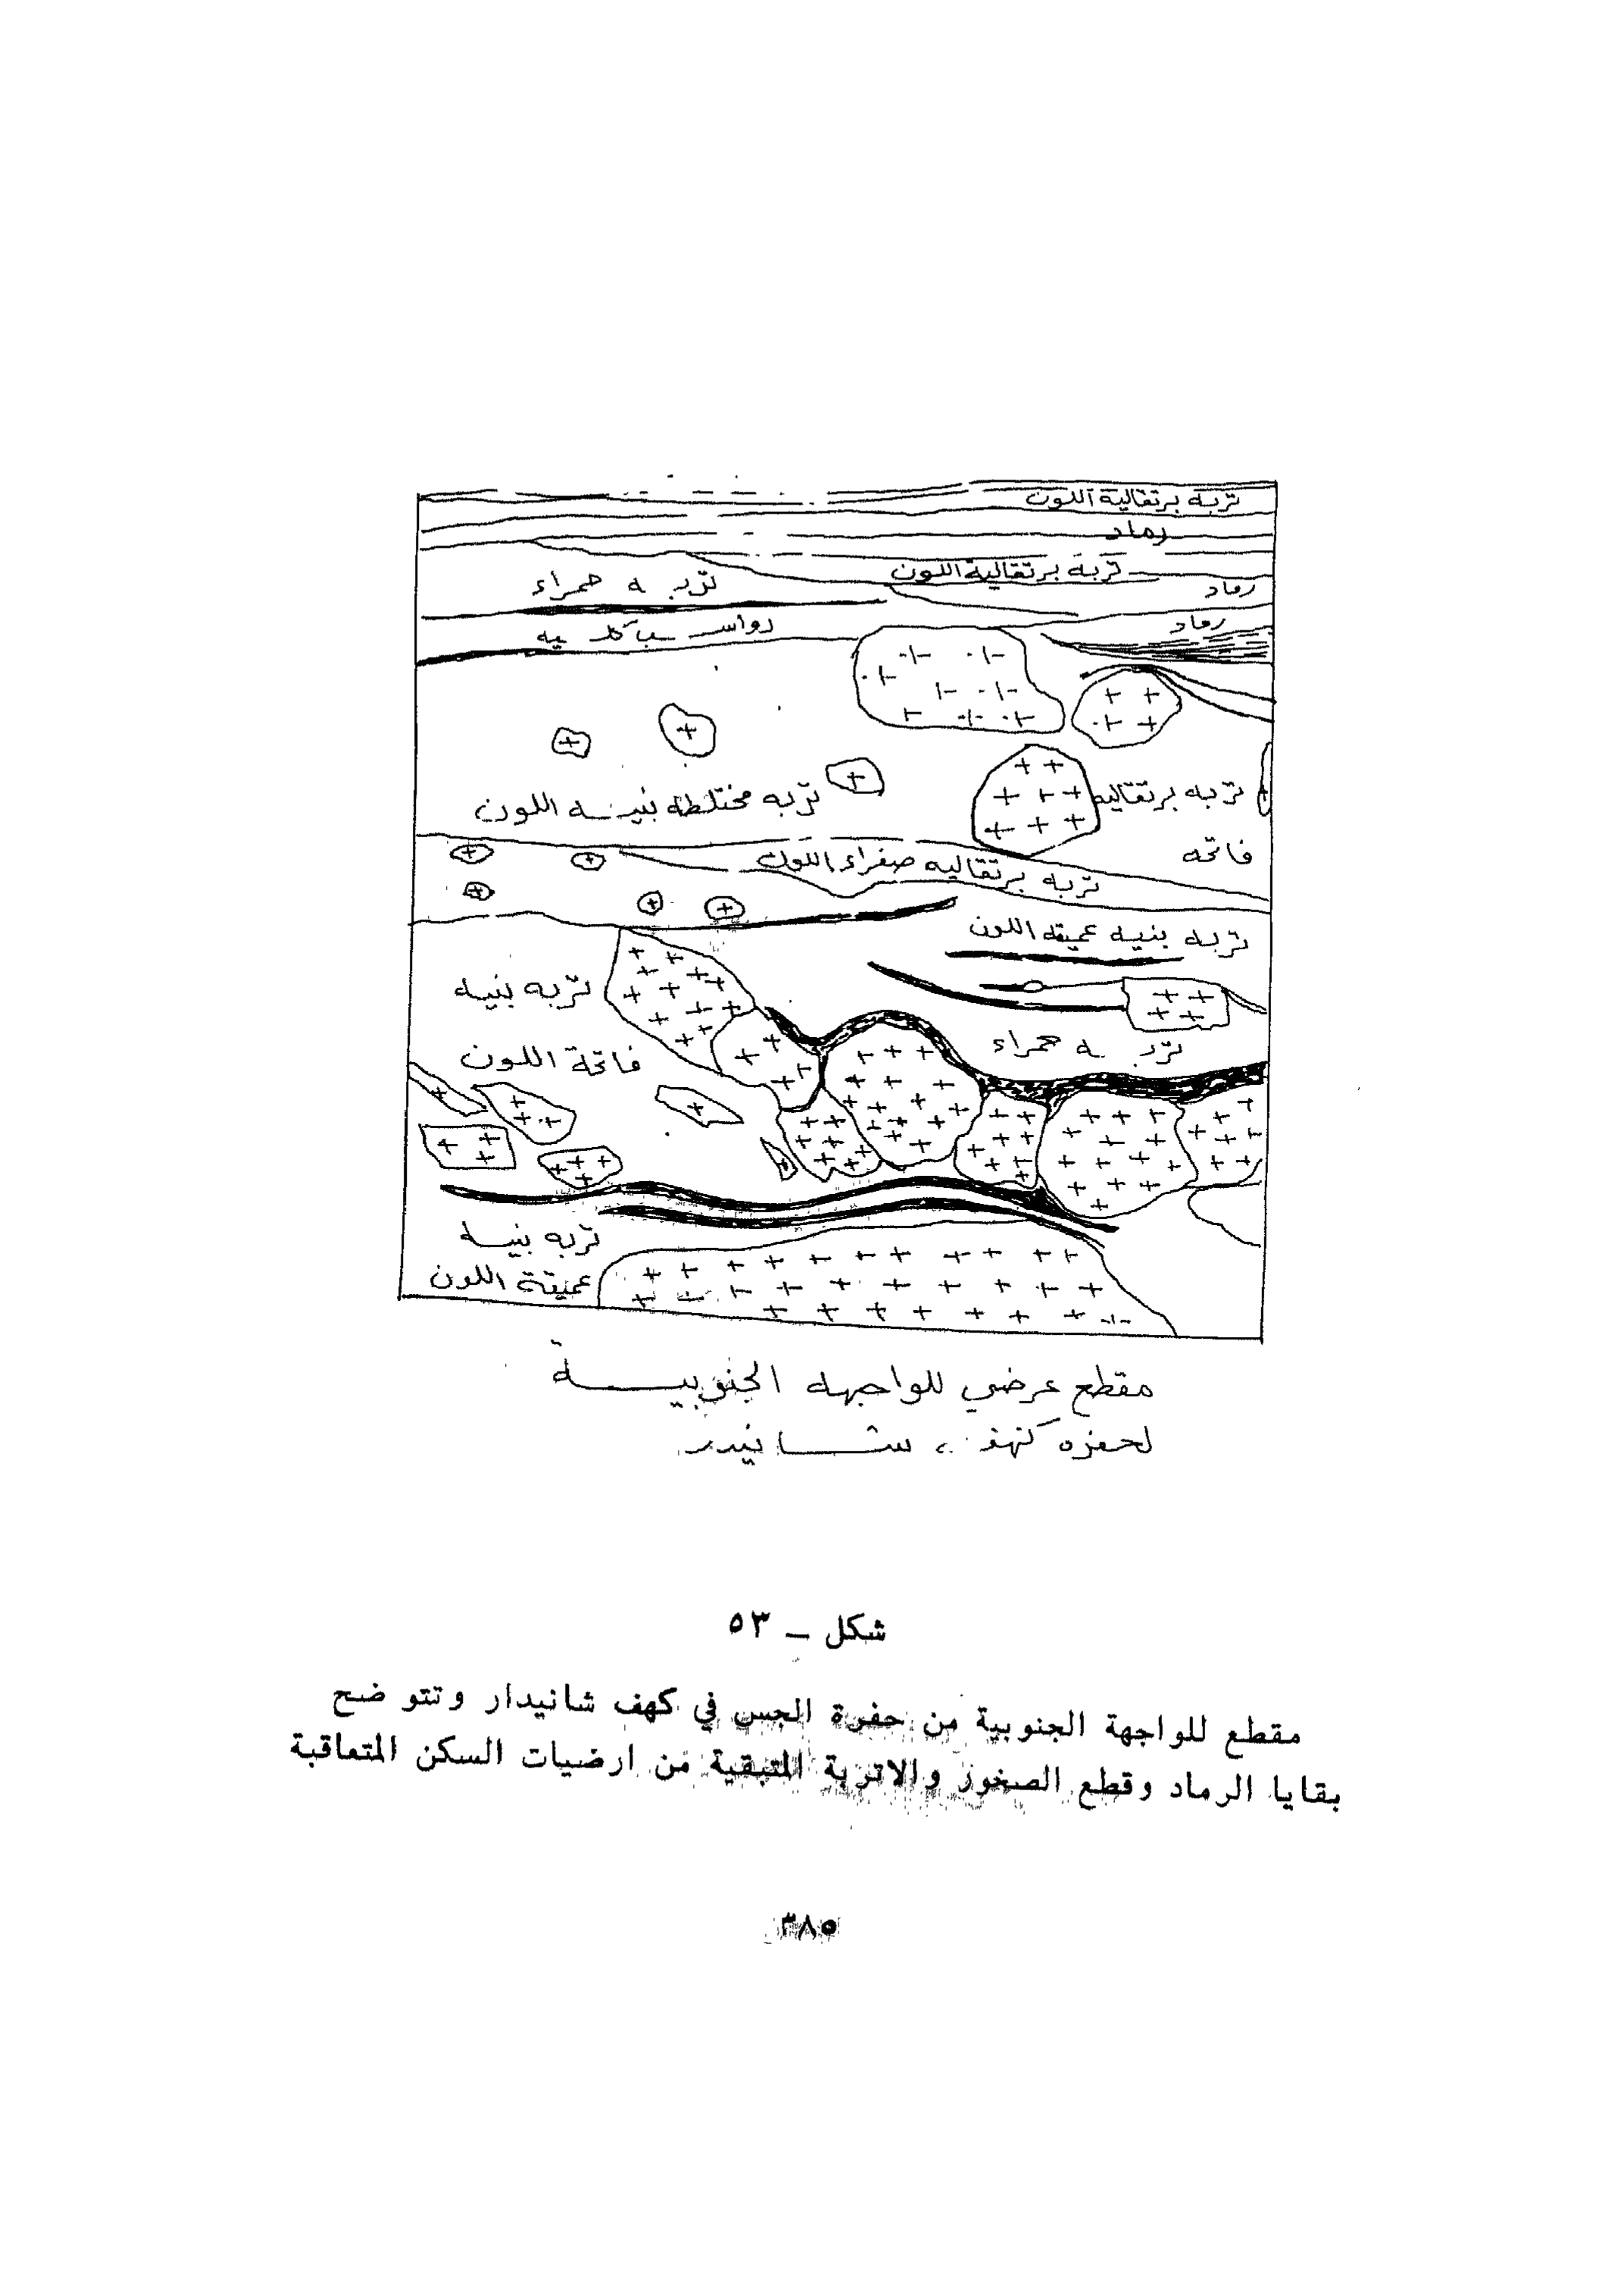 تربه برتقالية اللون
رماد
تربه برتقالية اللون
تربه حمراء
رماد
رماد
رواسب كلسيه
تربه برتقاليه
فاتحه
تربه مختلطه بنيه اللون
تربه برتقاليه صفراء اللون
تربه بنيه عميقه اللون
تربه بنيه
فاتحة اللون
تربه حمراء
تربه بنيه
عميقة اللون
مقطع عرضي للواجهه الجنوبيـــة
لحفره كهف شانيدر
شكل ــ ٥٣
مقطع للواجهة الجنوبية من حفرة الجس في كهف شانيدار وتتوضح
بقايا الرماد وقطع الصخور والاتربة المتبقية من ارضيات السكن المتعاقبة
٣٨٥